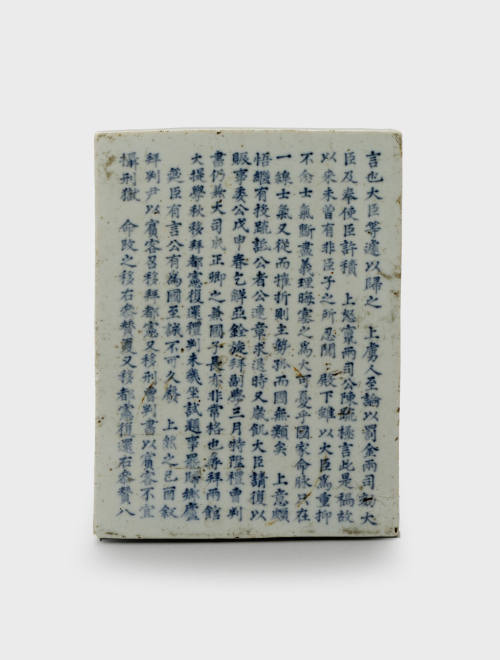 言也大臣等遽以歸之　上虜人至論以罰金兩司劾大
臣及奉使臣許積　上怒竄兩司公陳疏極言此是禍故
以來未曾有非臣子之所忍聞　殿下雖以大臣爲重抑
不念士氣斷盡義理晦塞之爲大可憂乎國家命脉只在
一線士氣又從而摧折則主勢孤而國無類矣　上意頗
悟繼有投疏詆公者公連章求退時又歲飢大臣請復以
賑事委公戊申春乞解亞銓旋拜副學三月特陞禮曹判
書仍兼大司成正卿之兼國子長亦非常格也尋拜兩館
大提學秋移拜都憲復還禮判未幾坐試題事罷歸鄉廬
筵臣有言公有爲國至誠不可久廢　上敍之己酉叙
拜判尹以賓客召移拜都憲又移刑曹判書以賓客不宜
攝刑獄　命改之移右參贊夏又移都憲復還右參贊八